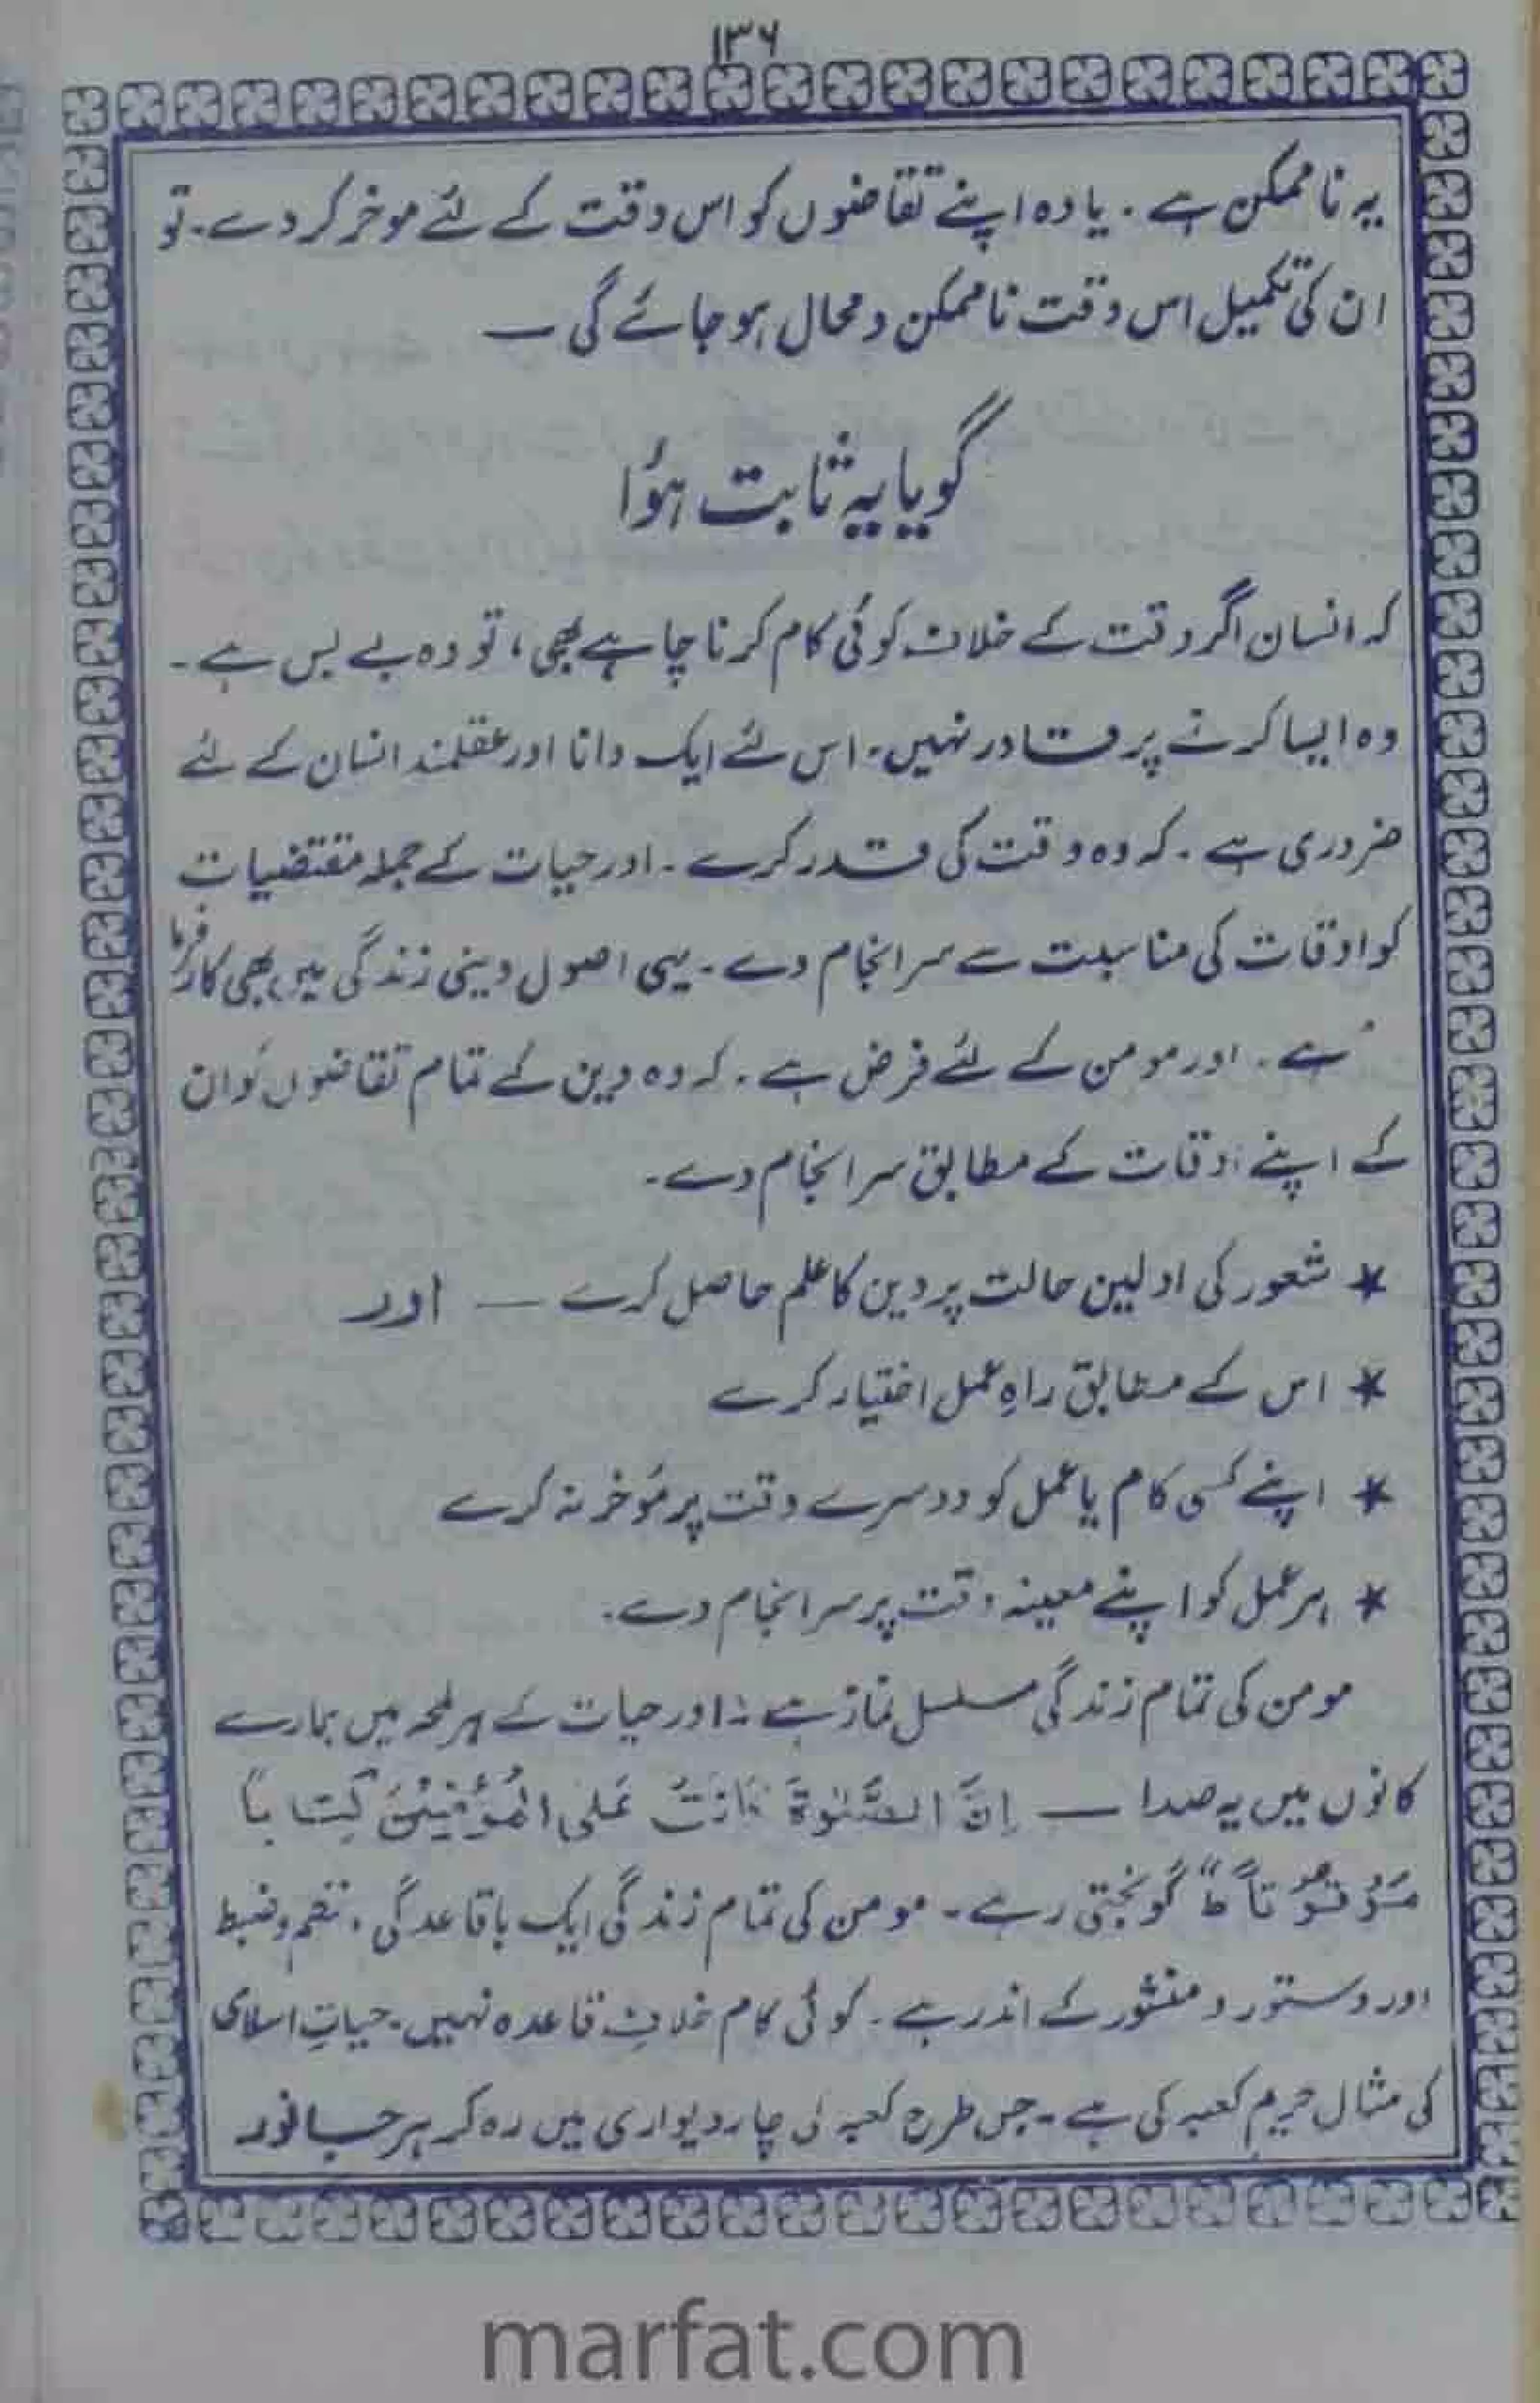 ۱۳۶
یہ ناممکن ہے ۔ یا وہ اپنے تقاضوں کو اس وقت کے لئے موخر کر دے ۔ تو
ان کی تکمیل اس وقت ناممکن و محال ہو جائے گی ــ
گویا یہ ثابت ہؤا
کہ انسان اگر وقت کے خلاف کوئی کام کرنا چاہے بھی ، تو وہ بے بس ہے ۔
وہ ایسا کرنے پر قادر نہیں ۔ اس لئے ایک دانا اور عقلمند انسان کے لئے
ضروری ہے ۔ کہ وہ وقت کی قدر کرے ۔ اور حیات کے جملہ مقتضیات
کو اوقات کی مناسبت سے سرانجام دے ۔ یہی اصول دینی زندگی میں بھی کارفرما
ہے ۔ اور مومن کے لئے فرض ہے ۔ کہ وہ دین کے تمام تقاضوں کو ان
کے اپنے اوقات کے مطابق سرانجام دے ۔
★ شعور کی اولین حالت پر دین کا علم حاصل کرے ـــ اور
★ اس کے مطابق راہِ عمل اختیار کرے
★ اپنے کسی کام یا عمل کو دوسرے وقت پر مؤخر نہ کرے
★ ہر عمل کو اپنے معینہ وقت پر سرانجام دے ۔
مومن کی تمام زندگی مسلسل نماز ہے ۔ اور حیات کے ہر لمحہ میں ہمارے
کانوں میں یہ صدا ـــ اِنَّ الصَّلٰوةَ كَانَتْ عَلَى الْمُؤْمِنِيْنَ كِتَابًا
مَّوْقُوْتًا ط گونجتی رہے ۔ مومن کی تمام زندگی ایک باقاعدگی ، نظم و ضبط
اور دستور و منشور کے اندر ہے ۔ کوئی کام خلافِ قاعدہ نہیں ۔ حیاتِ اسلامی
کی مثال حریمِ کعبہ کی ہے ۔ جس طرح کعبہ کی چار دیواری میں رہ کر ہر جانور
marfat.com